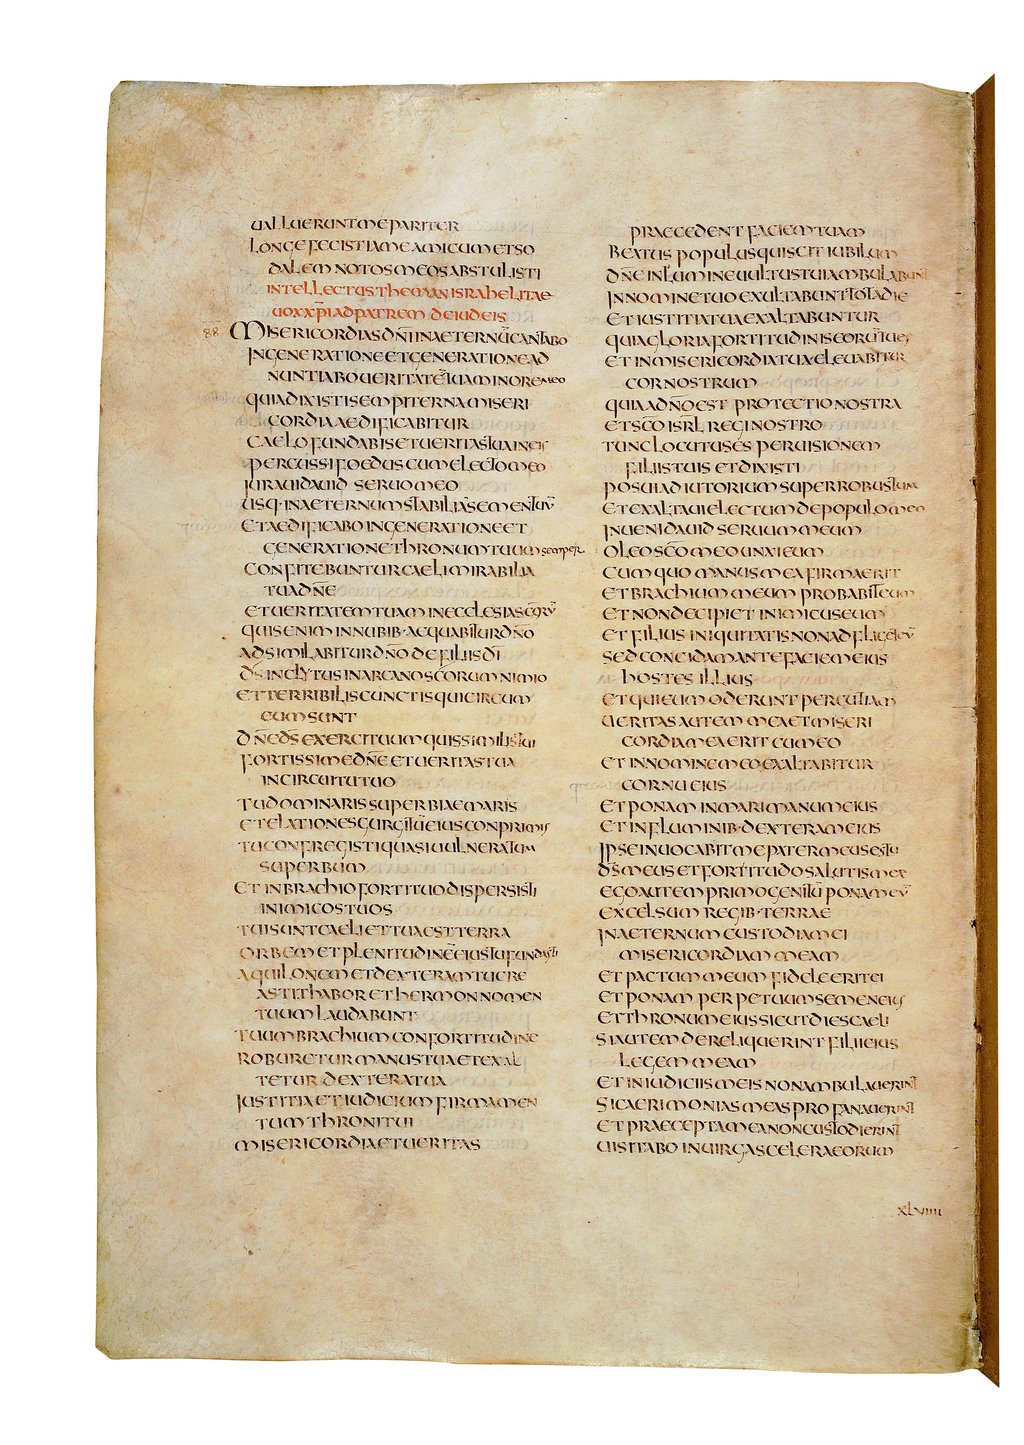 UALLUERUNT ME PARITER
LONGE FECISTI A ME AMICUM ET SO
DALEM NOTOS MEOS ABSTULISTI
INTELLECTUS THEMAN ISRAHELITAE
UOX XPI AD PATREM DE IUDEIS
88 MISERICORDIAS DNI IN AETERNU CANTABO
IN GENERATIONE ET GENERATIONE AD
NUNTIABO UERITATE TUAM IN ORE MEO
QUIA DIXISTI SEMPITERNA MISERI
CORDIA AEDIFICABITUR
CAELO FUNDABIS ET UERITAS TUA IN EIS
PERCUSSI FOEDUS CUM ELECTO MEO
IURAUI DAUID SERUO MEO
USQ· IN AETERNUM STABILIA SEMEN TUU
ET AEDIFICABO IN GENERATIONE ET
GENERATIONE THRONUM TUUM SEMPER
CONFITEBUNTUR CAELI MIRABILIA
TUA DNE
ET UERITATEM TUAM IN ECCLESIA SCORU
QUIS ENIM IN NUBIB· AEQUABITUR DNO
ADSIMILABITUR DNO DE FILIIS DI
DS INCLYTUS IN ARCANO SCORUM NIMIO
ET TERRIBILIS CUNCTIS QUI CIRCUM
EUM SUNT
DNE DS EXERCITUUM QUIS SIMILIS TUI
FORTISSIME DNE ET UERITAS TUA
IN CIRCUITU TUO
TU DOMINARIS SUPERBIAE MARIS
ET ELATIONES GURGITU EIUS CONPRIMIS
TU CONFREGISTI QUASI UULNERATUM
SUPERBUM
ET IN BRACHIO FORTI TUO DISPERSISTI
INIMICOS TUOS
TUI SUNT CAELI ET TUA EST TERRA
ORBEM ET PLENITUDINE EIUS TU FUNDASTI
AQUILONEM ET DEXTERAM TU CRE
ASTI THABOR ET HERMON NOMEN
TUUM LAUDABUNT
TUUM BRACHIUM CON FORTITUDINE
ROBURETUR MANUS TUA ET EXAL
TETUR DEXTERA TUA
IUSTITIA ET IUDICIUM FIRMAMEN
TUM THRONI TUI
MISERICORDIA ET UERITAS
PRAECEDENT FACIEM TUAM
BEATUS POPULUS QUI SCIT IUBILUM
DNE IN LUMINE UULTUS TUI AMBULABUNT
IN NOMINE TUO EXULTABUNT TOTA DIE
ET IUSTITIA TUA EXALTABUNTUR
QUIA GLORIA FORTITUDINIS EORU TU ES
ET IN MISERICORDIA TUA ELEUABITUR
CORNOSTRUM
QUIA A DNO EST PROTECTIO NOSTRA
ET SCO ISRL REGI NOSTRO
TUNC LOCUTUS ES PER UISIONEM
FILIIS TUIS ET DIXISTI
POSUI ADIUTORIUM SUPER ROBUSTUM
ET EXALTAUI ELECTUM DE POPULO MEO
INUENI DAUID SERUUM MEUM
OLEO SCO MEO UNXI EUM
CUM QUO MANUS MEA FIRMA ERIT
ET BRACHIUM MEUM PROBABIT EUM
ET NON DECIPIET INIMICUS EUM
ET FILIUS INIQUITATIS NON ADFLIGET EU
SED CONCIDAM ANTE FACIEM EIUS
HOSTES ILLIUS
ET QUI EUM ODERUNT PERCUTIAM
UERITAS AUTEM MEA ET MISERI
CORDIA MEA ERIT CUM EO
ET IN NOMINE MEO EXALTABITUR
CORNU EIUS
ET PONAM IN MARI MANUM EIUS
ET IN FLUMINIB· DEXTERAM EIUS
IPSE INUOCABIT ME PATER MEUS ES TU
DS MEUS ET FORTITUDO SALUTIS MEAE
EGO AUTEM PRIMOGENITU PONAM EU
EXCELSUM REGIB· TERRAE
IN AETERNUM CUSTODIAM EI
MISERICORDIAM MEAM
ET PACTUM MEUM FIDELE ERIT EI
ET PONAM PERPETUUM SEMEN EIUS
ET THRONUM EIUS SICUT DIES CAELI
SI AUTEM DERELIQUERINT FILII EIUS
LEGEM MEAM
ET IN IUDICIIS MEIS NON AMBULAUERINT
SI CAERIMONIAS MEAS PROFANAUERINT
ET PRAECEPTA MEA NON CUSTODIERINT
UISITABO IN UIRGA SCELERA EORUM
XLVIIII